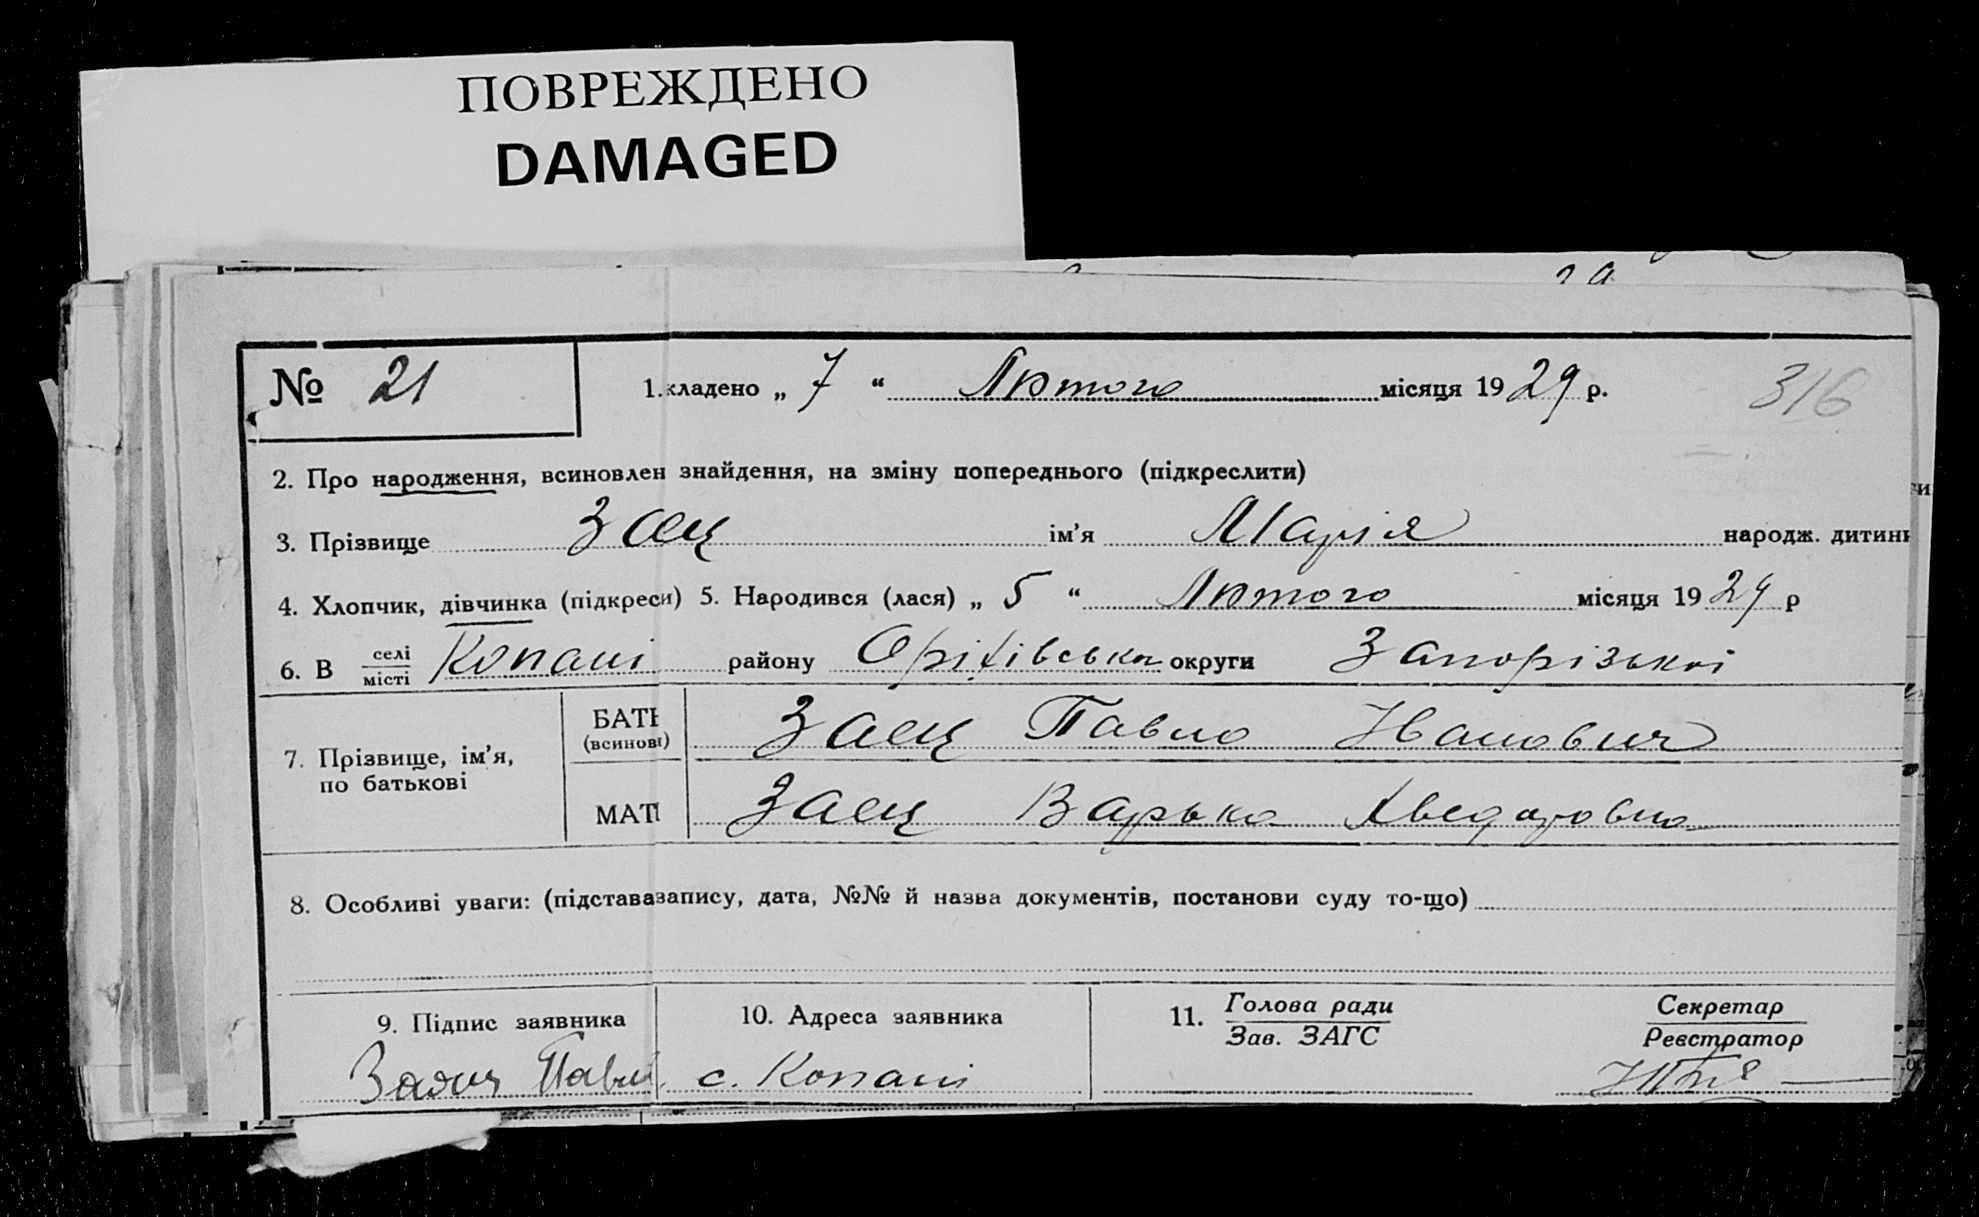 ПОВРЕЖДЕНО
DAMAGED
№ 21
1. кладено „ 7 “ Лютого місяця 1929 р.
316
2. Про народження, всиновлен знайдення, на зміну попереднього (підкреслити)
3. Прізвище Заец ім’я Марія народж. дитин
4. Хлопчик, дівчинка (підкреси) 5. Народився (лася) „ 5 “ Лютого місяця 1929 р
6. В селі місті Копані району Оріхівська округи Запорізької
7. Прізвище, ім’я, по батькові
БАТЬ (всинові) Заец Павло Иванович
МАТІ Заец Варька Хведоровна
8. Особливі уваги: (підстава запису, дата, №№ й назва документів, постанови суду то-що)
9. Підпис заявника
10. Адреса заявника
11. Голова ради
Зав. ЗАГС
Секретар
Реєстратор
Заяць Павл с. Копані